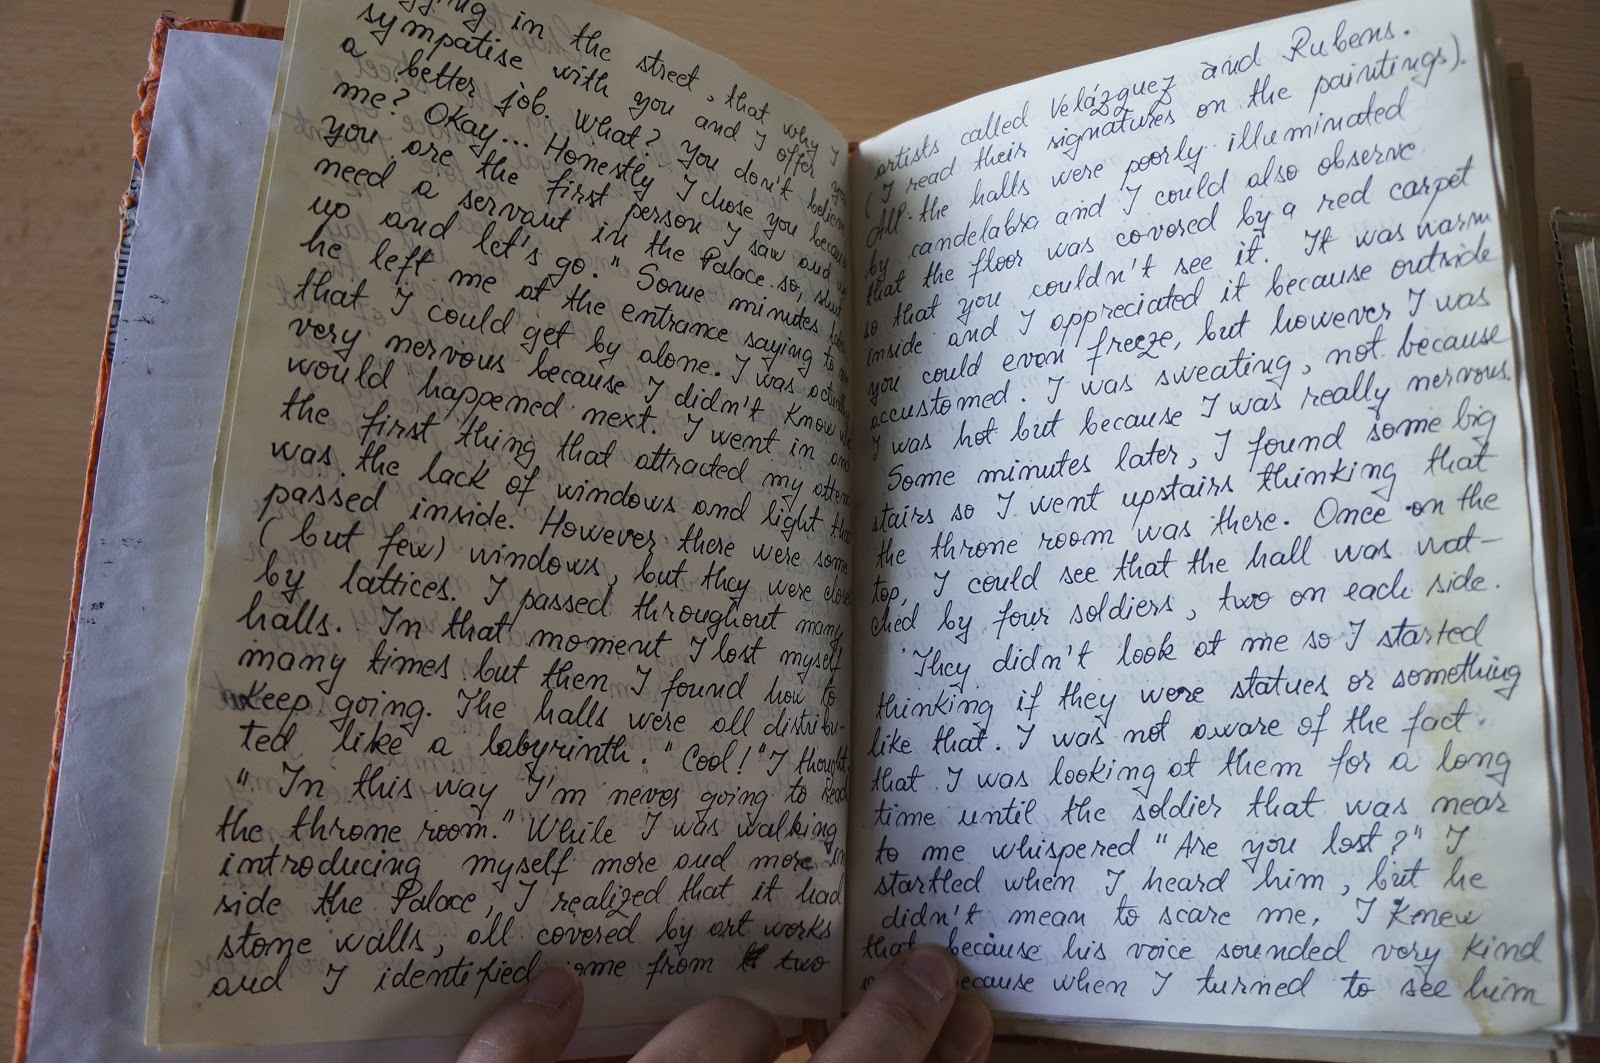 in the street, that why I
sympatise with you and I offer you
a better job. What? You don't believe
me? Okay... Honestly I chose you because
you are the first person I saw and we
need a servant in the Palace. so, shut
up and let's go." Some minutes later
he left me at the entrance saying to me
that I could get by alone. I was actually
very nervous because I didn't know
would happened next. I went in and
the first thing that attracted my
was the lack of windows and light that
passed inside. However there were some
(but few) windows, but they were
by lattices. I passed throughout many
halls. In that moment I lost myself
many times but then I found how to
keep going. The halls were all distribu-
ted like a labyrinth. "Cool!" I thought.
"In this way I'm never going to reach
the throne room." While I was walking,
introducing myself more and more in
side the Palace, I realized that it had
stone walls, all covered by art works
and I identified some from two
artists called Velázquez and Rubens.
(I read their signatures on the paintings).
All the halls were poorly illuminated
by candelabra and I could also observe
that the floor was covered by a red carpet
so that you couldn't see it. It was warm
inside and I appreciated it because outside
you could even freeze, but however I was
accustomed. I was sweating, not because
I was hot but because I was really nervous.
Some minutes later, I found some big
stairs so I went upstairs thinking that
the throne room was there. Once on the
top, I could see that the hall was wat-
ched by four soldiers, two on each side.
They didn't look at me so I started
thinking if they were statues or something
like that. I was not aware of the fact
that I was looking at them for a long
time until the soldier that was near
to me whispered "Are you lost?" I
startled when I heard him, but he
didn't mean to scare me, I knew
that because his voice sounded very kind
because when I turned to see him